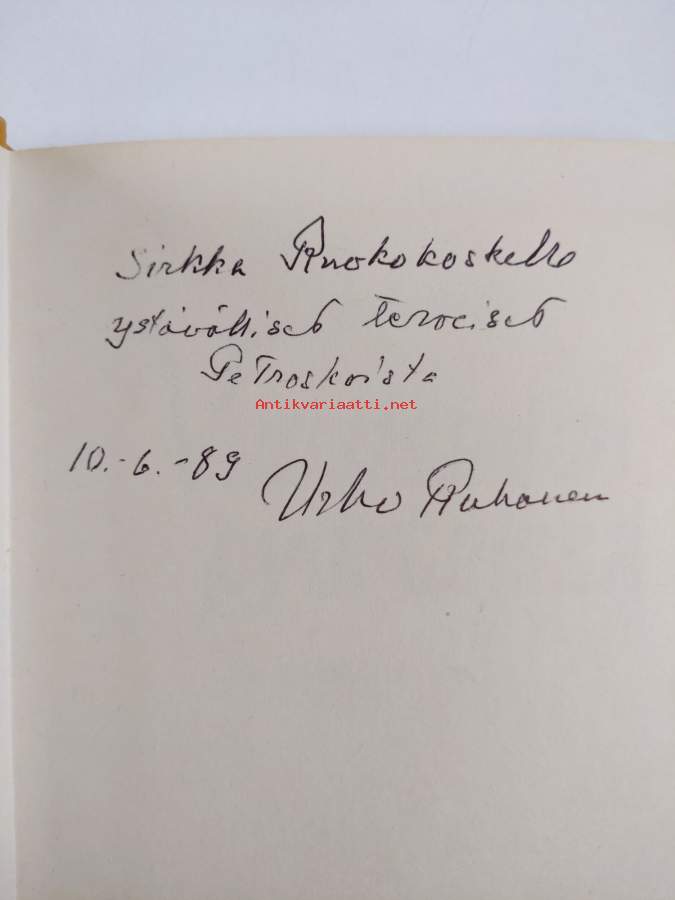 Sirkka Ruokokoskelle
ystävälliset terveiset
Petroskoista
Antikvariaatti.net
10.-6.-89 Urho Ruhanen